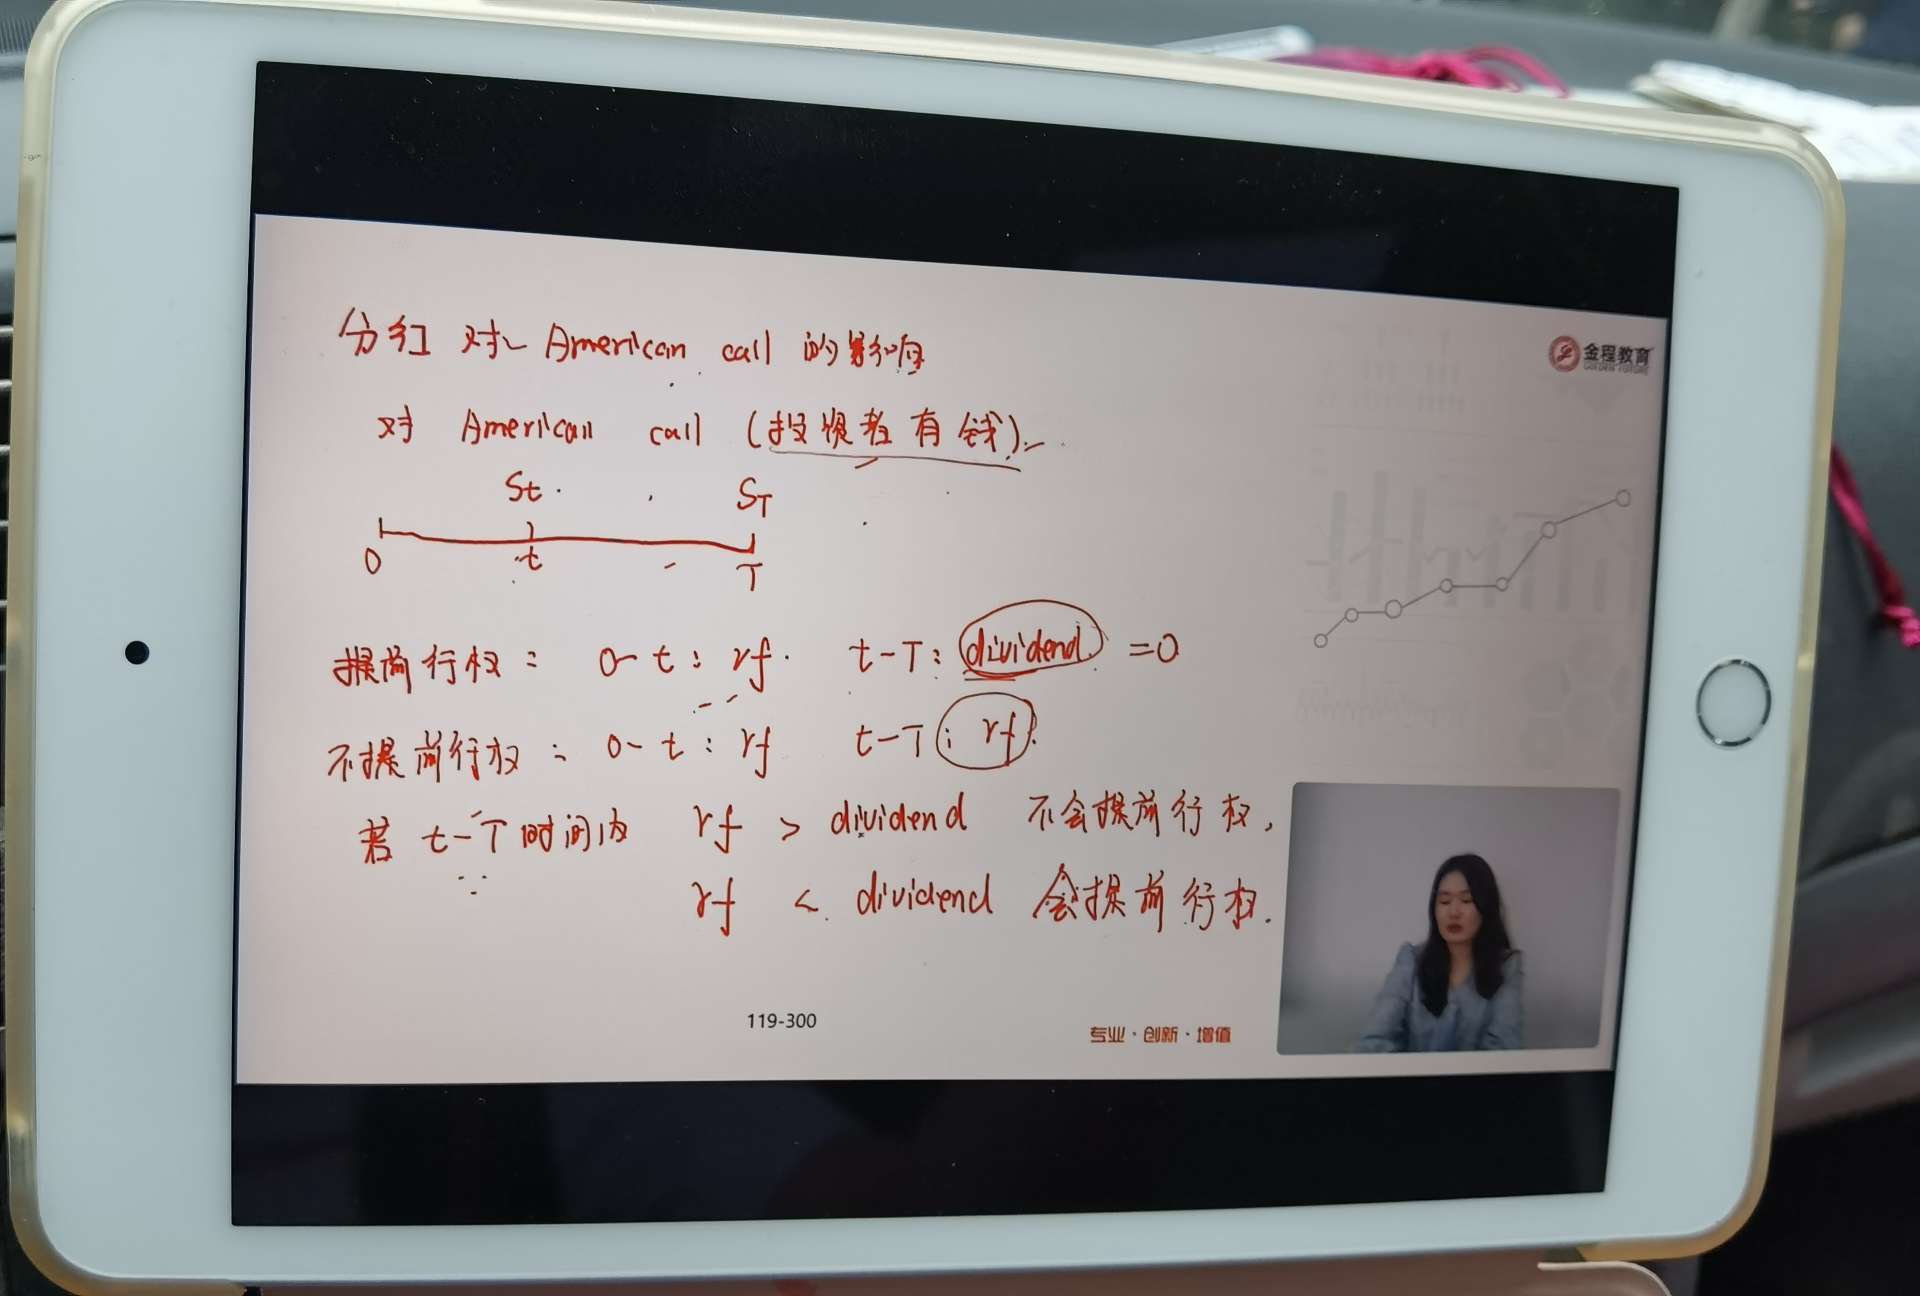 分红 对 American call 的影响
金程教育
GOLDEN FUTURE
对 American call (投资者有钱).
St ST
0 t T
提前行权: 0-t: rf. t-T: dividend =0
不提前行权: 0-t: rf t-T: rf.
若 t-T 时间内 rf > dividend 不会提前行权,
rf < dividend 会提前行权.
119-300
专业·创新·增值